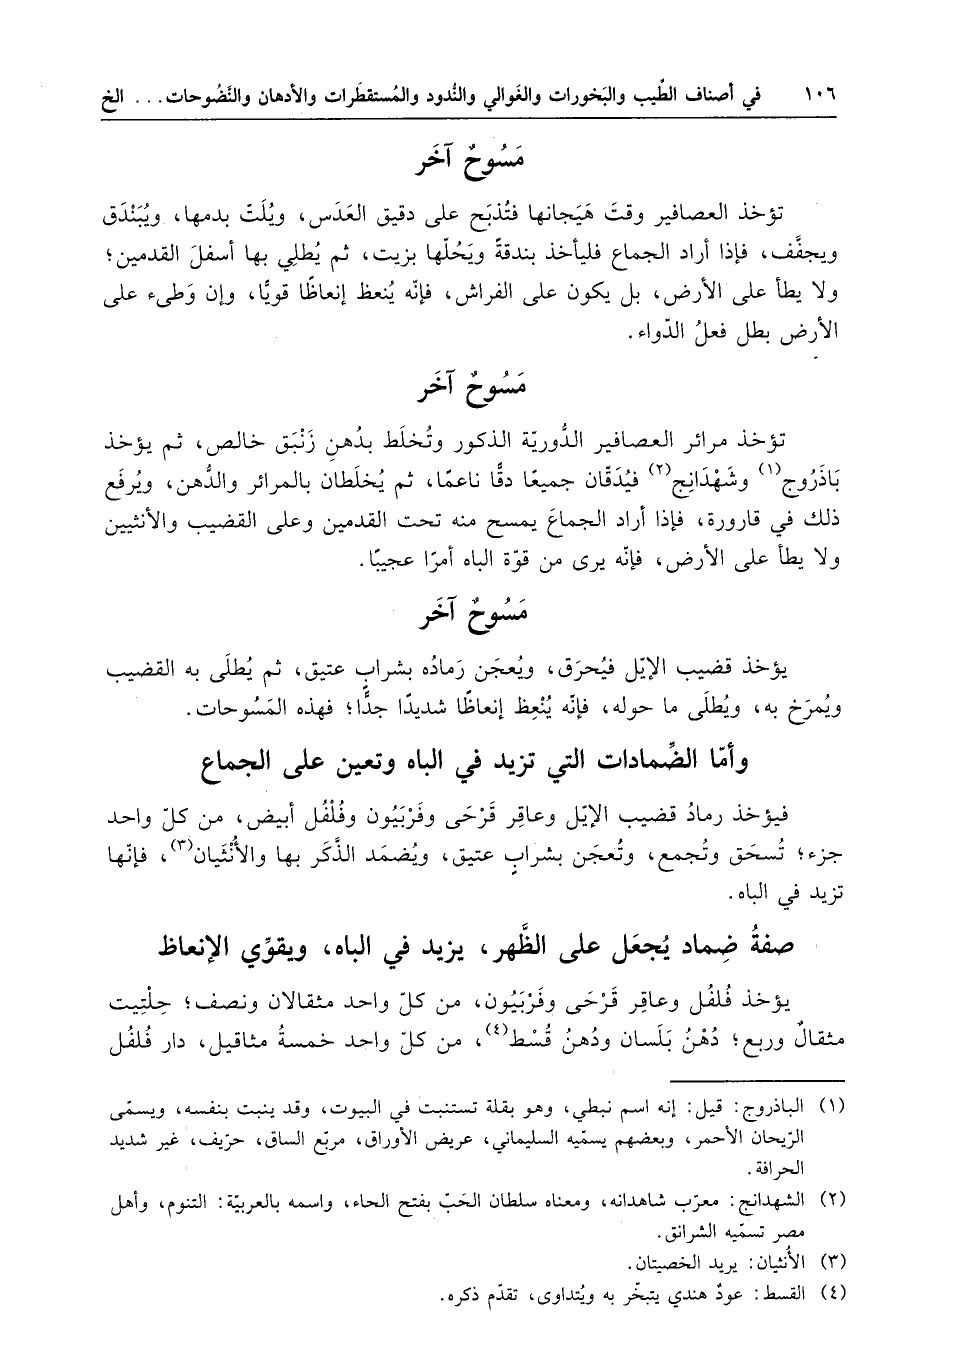 ١٠٦ في أصناف الطِّيب والبَخورات والغَوالي والنُّدود والمُستقطَرات والأدهان والنَّضُوحات... الخ
مَسُوحٌ آخَر
تؤخذ العصافير وقتَ هَيَجانها فتُذبَح على دقيق العَدَس، ويُلَتّ بدمها، ويُبَنْدَق
ويجفَّف، فإذا أراد الجماع فليأخذ بندقةً ويَحُلّها بزيت، ثم يُطلِي بها أسفلَ القدمين؛
ولا يطأ على الأرض، بل يكون على الفراش، فإنّه يُنعظ إنعاظًا قويًّا، وإن وَطىء على
الأرض بطل فعلُ الدّواء.
مَسُوحٌ آخَر
تؤخذ مرائر العصافير الدُّوريّة الذكور وتُخلَط بدُهنِ زَنْبَق خالص، ثم يؤخذ
بَاذَرُوج(١) وشَهْدَانِج(٢) فيُدَقّان جميعًا دقًّا ناعمًا، ثم يُخلَطان بالمرائر والدُّهن، ويُرفَع
ذلك في قارورة، فإذا أراد الجماعَ يمسح منه تحت القدمين وعلى القضيب والأنثيين
ولا يطأ على الأرض، فإنّه يرى من قوّة الباه أمرًا عجيبًا.
مَسُوحٌ آخَر
يؤخذ قضيب الإيّل فيُحرَق، ويُعجَن رَمادُه بشرابٍ عتيق، ثم يُطلَى به القضيب
ويُمرَخ به، ويُطلَى ما حوله، فإنّه يُنْعِظ إنعاظًا شديدًا جدًّا؛ فهذه المَسُوحات.
وأمّا الضِّمادات التي تزيد في الباه وتعين على الجماع
فيؤخذ رمادُ قضيب الإيّل وعاقِر قَرْحَى وفَرْبَيُون وفُلْفُل أبيض، من كلّ واحد
جزء؛ تُسحَق وتُجمع، وتُعجَن بشرابٍ عتيق، ويُضمَد الذَّكَر بها والأُنْثَيان(٣)، فإنّها
تزيد في الباه.
صفةُ ضِماد يُجعَل على الظَّهر، يزيد في الباه، ويقوِّي الإنعاظ
يؤخذ فُلفُل وعاقِر قَرْحَى وفَرْبَيُون، من كلّ واحد مثقالان ونصف؛ حِلْتِيت
مثقالٌ وربع؛ دُهْنُ بَلَسان ودُهنُ قُسْط(٤)، من كلّ واحد خمسةُ مثاقيل، دار فُلفُل
(١) الباذروج: قيل: إنه اسم نبطي، وهو بقلة تستنبت في البيوت، وقد ينبت بنفسه، ويسمّى
الرّيحان الأحمر، وبعضهم يسمّيه السليماني، عريض الأوراق، مربّع الساق، حرّيف، غير شديد
الحرافة.
(٢) الشهدانج: معرّب شاهدانه، ومعناه سلطان الحَبّ بفتح الحاء، واسمه بالعربيّة: التنوم، وأهل
مصر تسمّيه الشرانق.
(٣) الأُنثيان: يريد الخصيتان.
(٤) القسط: عودٌ هندي يتبخّر به ويُتداوى، تقدّم ذكره.